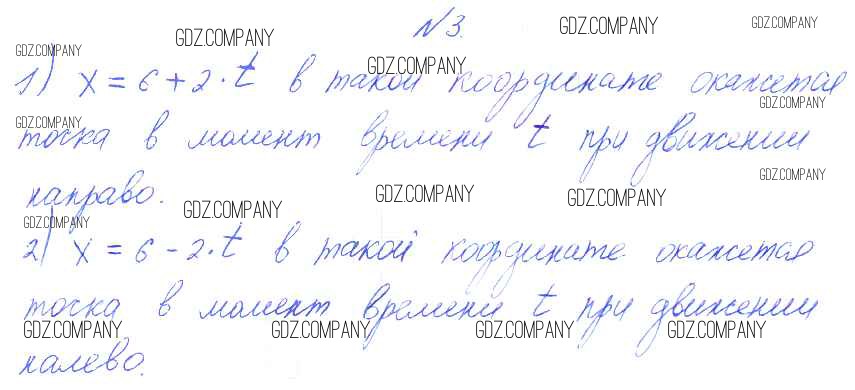 №3.
GDZ.COMPANY GDZ.COMPANY GDZ.COMPANY GDZ.COMPANY GDZ.COMPANY
1) x = 6 + 2 · t в такой координате окажется
GDZ.COMPANY GDZ.COMPANY
точка в момент времени t при движении
GDZ.COMPANY
направо.
GDZ.COMPANY GDZ.COMPANY GDZ.COMPANY GDZ.COMPANY
2) x = 6 - 2 · t в такой координате окажется
точка в момент времени t при движении
GDZ.COMPANY GDZ.COMPANY GDZ.COMPANY GDZ.COMPANY
налево.